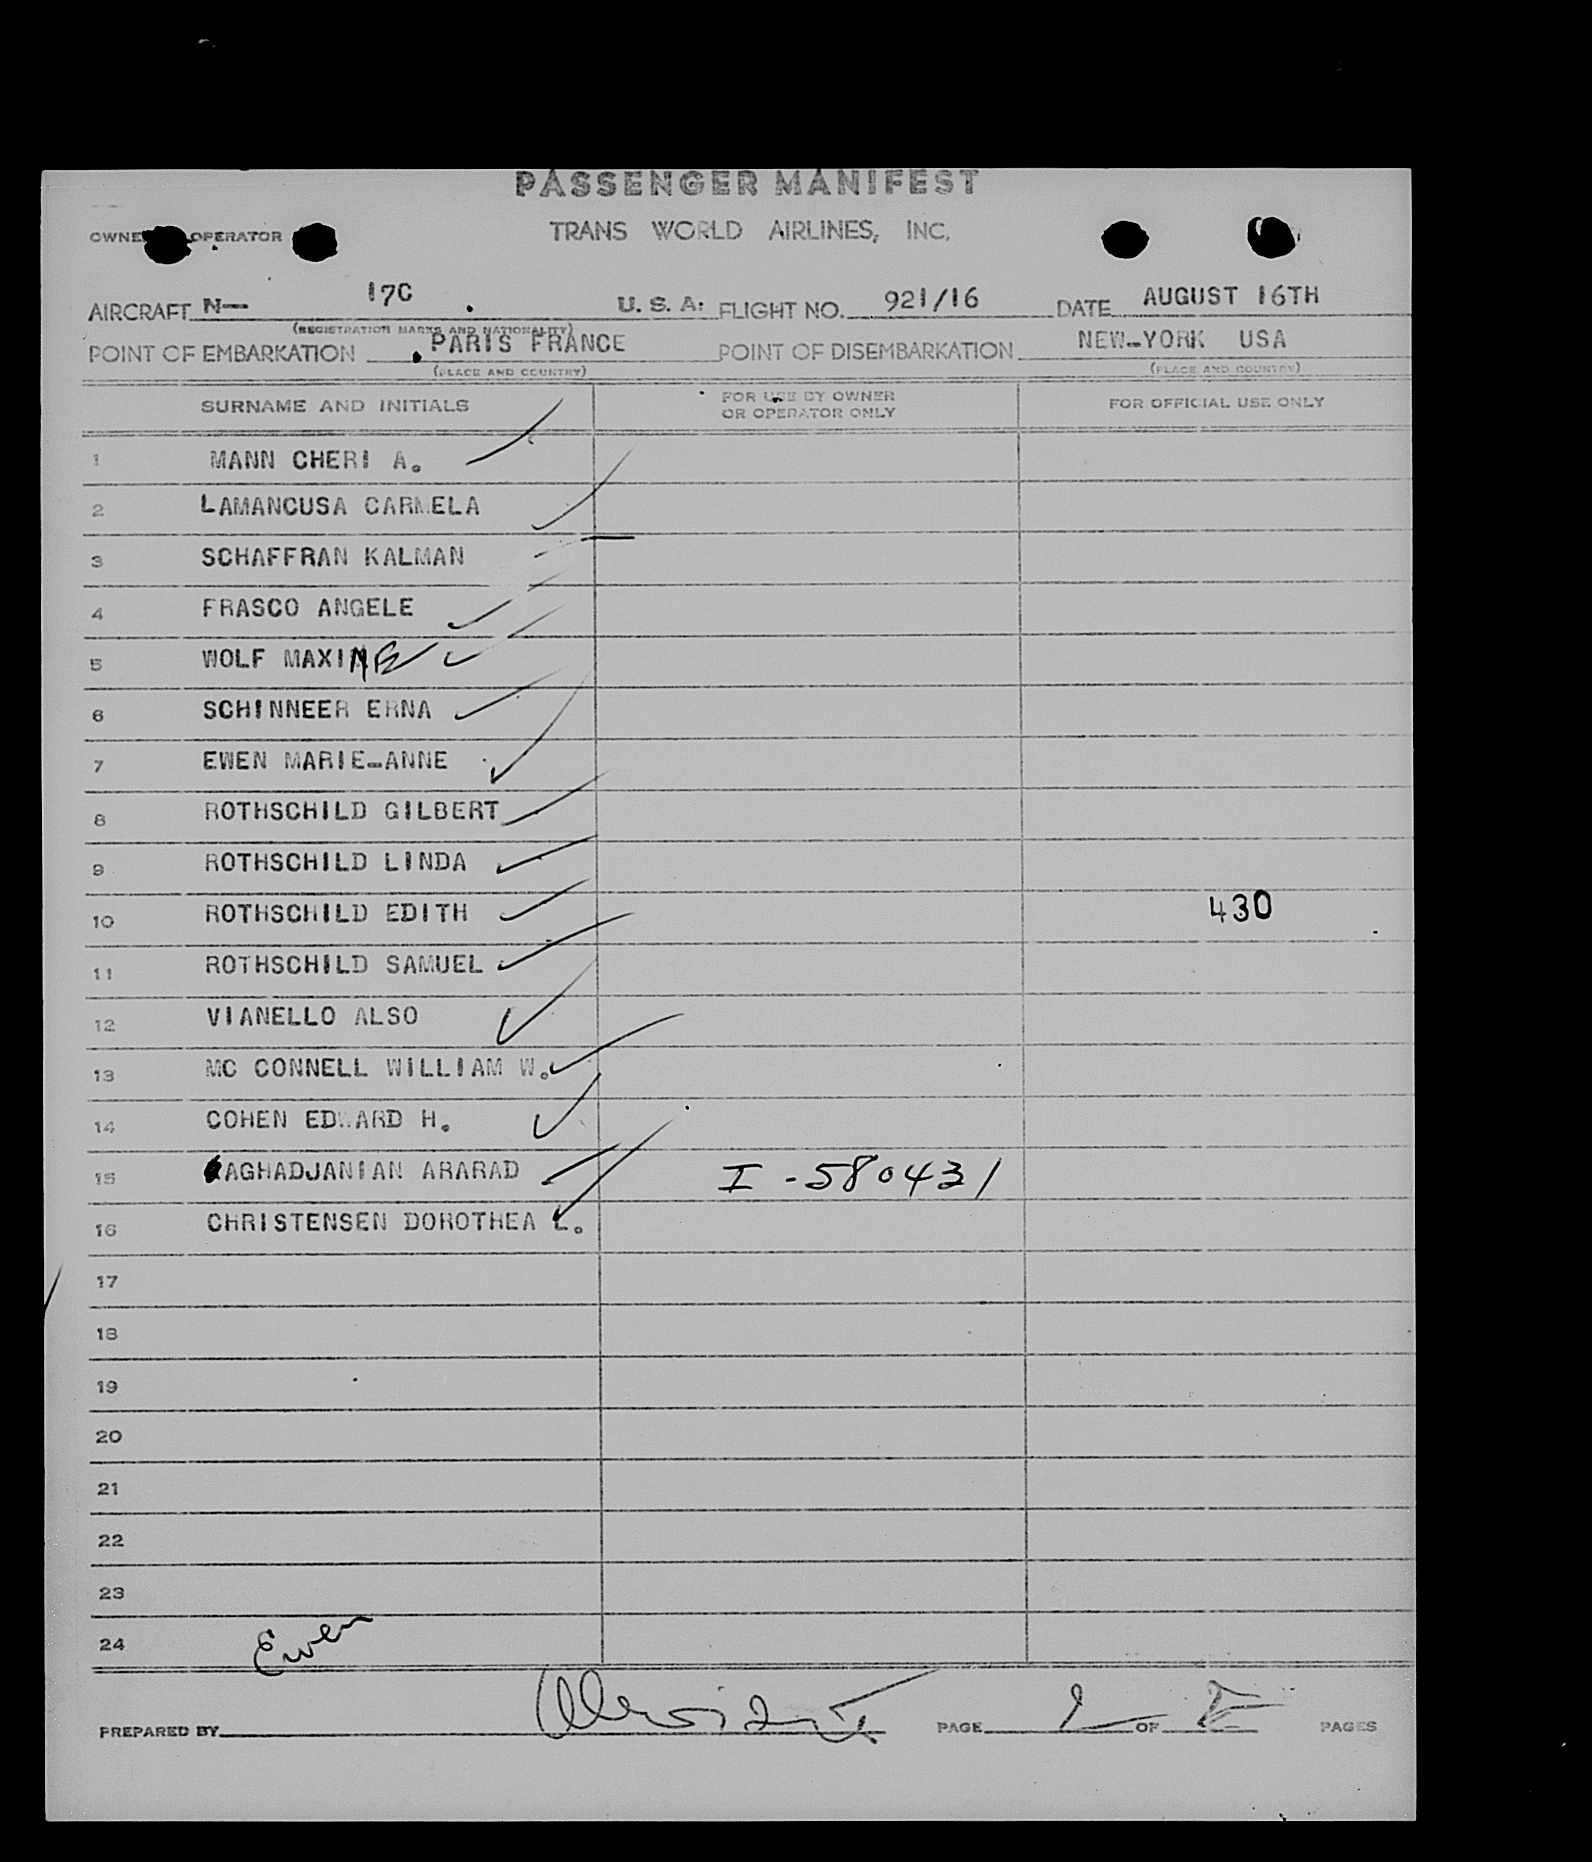 PASSENGER MANIFEST
OWNER OPERATOR TRANS WORLD AIRLINES, INC.
AIRCRAFT N— 17C U. S. A. FLIGHT NO. 921/16 DATE AUGUST 16TH
(REGISTRATION MARKS AND NATIONALITY)
POINT OF EMBARKATION PARIS FRANCE POINT OF DISEMBARKATION NEW-YORK USA
(PLACE AND COUNTRY) (PLACE AND COUNTRY)
SURNAME AND INITIALS FOR USE BY OWNER OR OPERATOR ONLY FOR OFFICIAL USE ONLY
1 MANN CHERI A.
2 LAMANCUSA CARMELA
3 SCHAFFRAN KALMAN
4 FRASCO ANGELE
5 WOLF MAXINE
6 SCHINNEER ERNA
7 EWEN MARIE-ANNE
8 ROTHSCHILD GILBERT
9 ROTHSCHILD LINDA
10 ROTHSCHILD EDITH 430
11 ROTHSCHILD SAMUEL
12 VIANELLO ALSO
13 MC CONNELL WILLIAM W.
14 COHEN EDWARD H.
15 AGHADJANIAN ARARAD I-580431
16 CHRISTENSEN DOROTHEA L.
17
18
19
20
21
22
23
24 Ewen
PREPARED BY PAGE OF PAGES